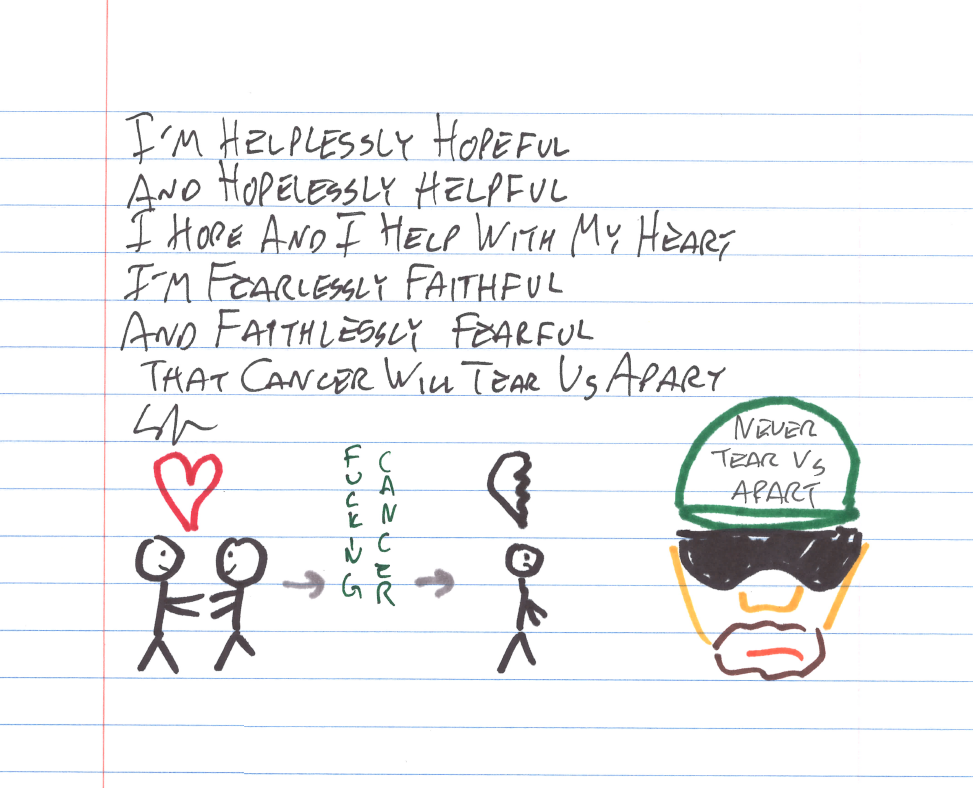 I'M HELPLESSLY HOPEFUL
AND HOPELESSLY HELPFUL
I HOPE AND I HELP WITH MY HEART
I'M FEARLESSLY FAITHFUL
AND FAITHLESSLY FEARFUL
THAT CANCER WILL TEAR US APART
FUCKING
CANCER
NEVER
TEAR US
APART